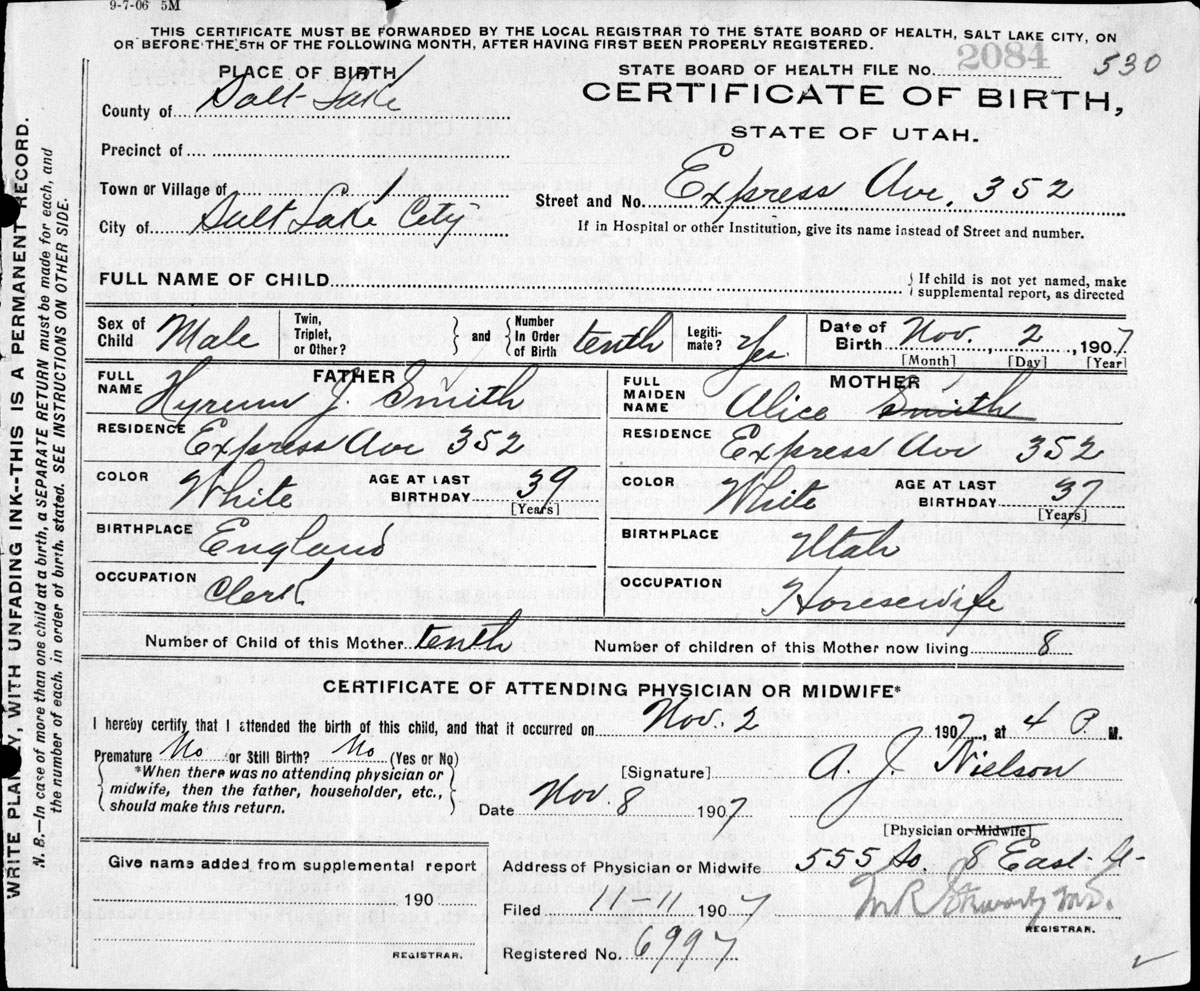 9-7-06 5M
THIS CERTIFICATE MUST BE FORWARDED BY THE LOCAL REGISTRAR TO THE STATE BOARD OF HEALTH, SALT LAKE CITY, ON
OR BEFORE THE 5TH OF THE FOLLOWING MONTH, AFTER HAVING FIRST BEEN PROPERLY REGISTERED.
PLACE OF BIRTH
STATE BOARD OF HEALTH FILE No. 2084 530
County of Salt Lake
CERTIFICATE OF BIRTH,
STATE OF UTAH.
Precinct of
Town or Village of
Street and No. Express Ave, 352
City of Salt Lake City
If in Hospital or other Institution, give its name instead of Street and number.
FULL NAME OF CHILD
If child is not yet named, make
supplemental report, as directed
Sex of Child Male
Twin, Triplet, or Other?
and
Number In Order of Birth tenth
Legiti-mate? Yes
Date of Birth Nov. 2, 1907
[Month] [Day] [Year]
FATHER
FULL NAME Hyrum J. Smith
MOTHER
FULL MAIDEN NAME Alice Smith
RESIDENCE Express Ave 352
RESIDENCE Express Ave 352
COLOR White AGE AT LAST BIRTHDAY 39 [Years]
COLOR White AGE AT LAST BIRTHDAY 37 [Years]
BIRTHPLACE England
BIRTHPLACE Utah
OCCUPATION Clerk
OCCUPATION Housewife
Number of Child of this Mother tenth Number of children of this Mother now living 8
CERTIFICATE OF ATTENDING PHYSICIAN OR MIDWIFE*
I hereby certify that I attended the birth of this child, and that it occurred on Nov. 2 1907, at 4 P. M.
Premature No or Still Birth? No (Yes or No)
*When there was no attending physician or
midwife, then the father, householder, etc.,
should make this return.
[Signature] A. J. Nielson
Date Nov. 8 1907
[Physician or Midwife]
Give name added from supplemental report
190
REGISTRAR.
Address of Physician or Midwife 555 So. 8 East
Filed 11-11 1907
M R M.D.
REGISTRAR.
Registered No. 6997
WRITE PLAINLY, WITH UNFADING INK--THIS IS A PERMANENT RECORD.
N. B.—In case of more than one child at a birth, a SEPARATE RETURN must be made for each, and
the number of each, in order of birth, stated. SEE INSTRUCTIONS ON OTHER SIDE.